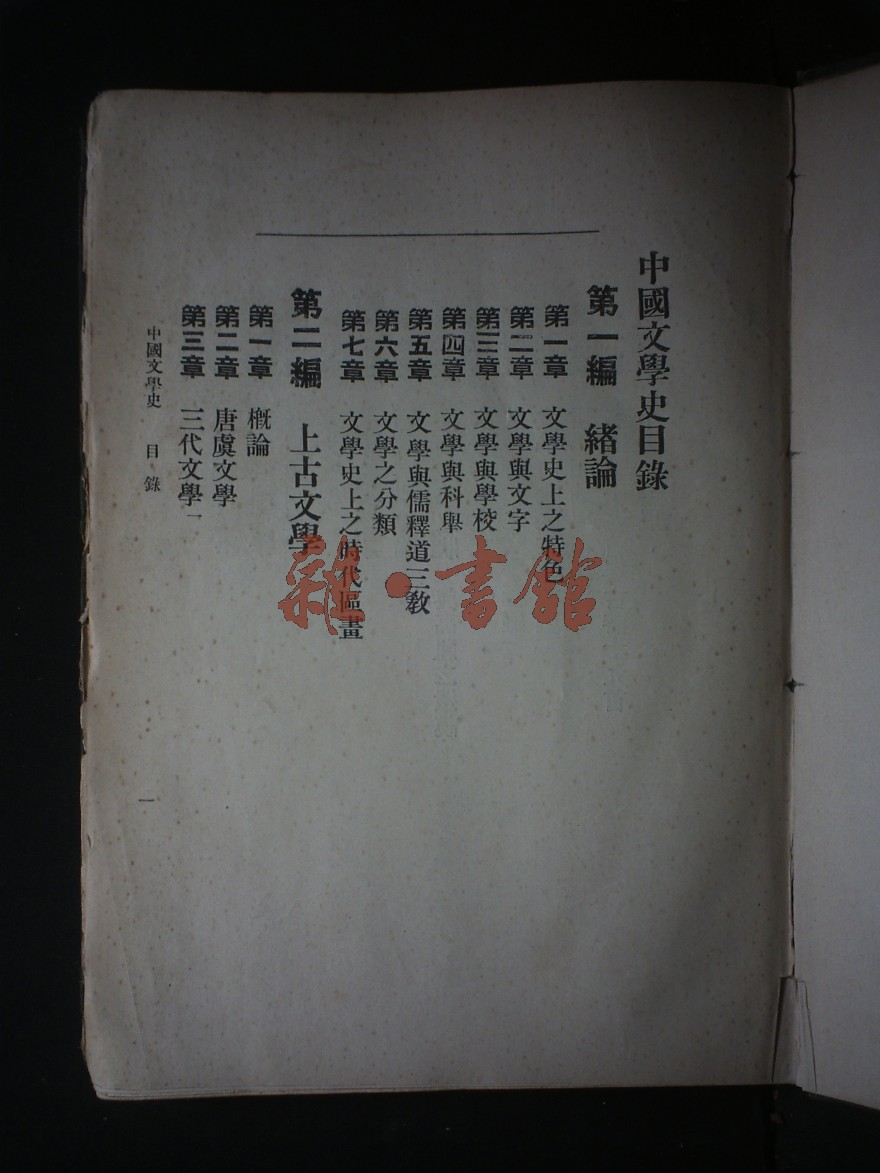 中國文學史目錄
第一編 緒論
第一章 文學史上之特色
第二章 文學與文字
第三章 文學與學校
第四章 文學與科舉
第五章 文學與儒釋道三教
第六章 文學之分類
第七章 文學史上之時代區畫
第二編 上古文學
第一章 概論
第二章 唐虞文學
第三章 三代文學一
中國文學史 目錄
一
雜·書館